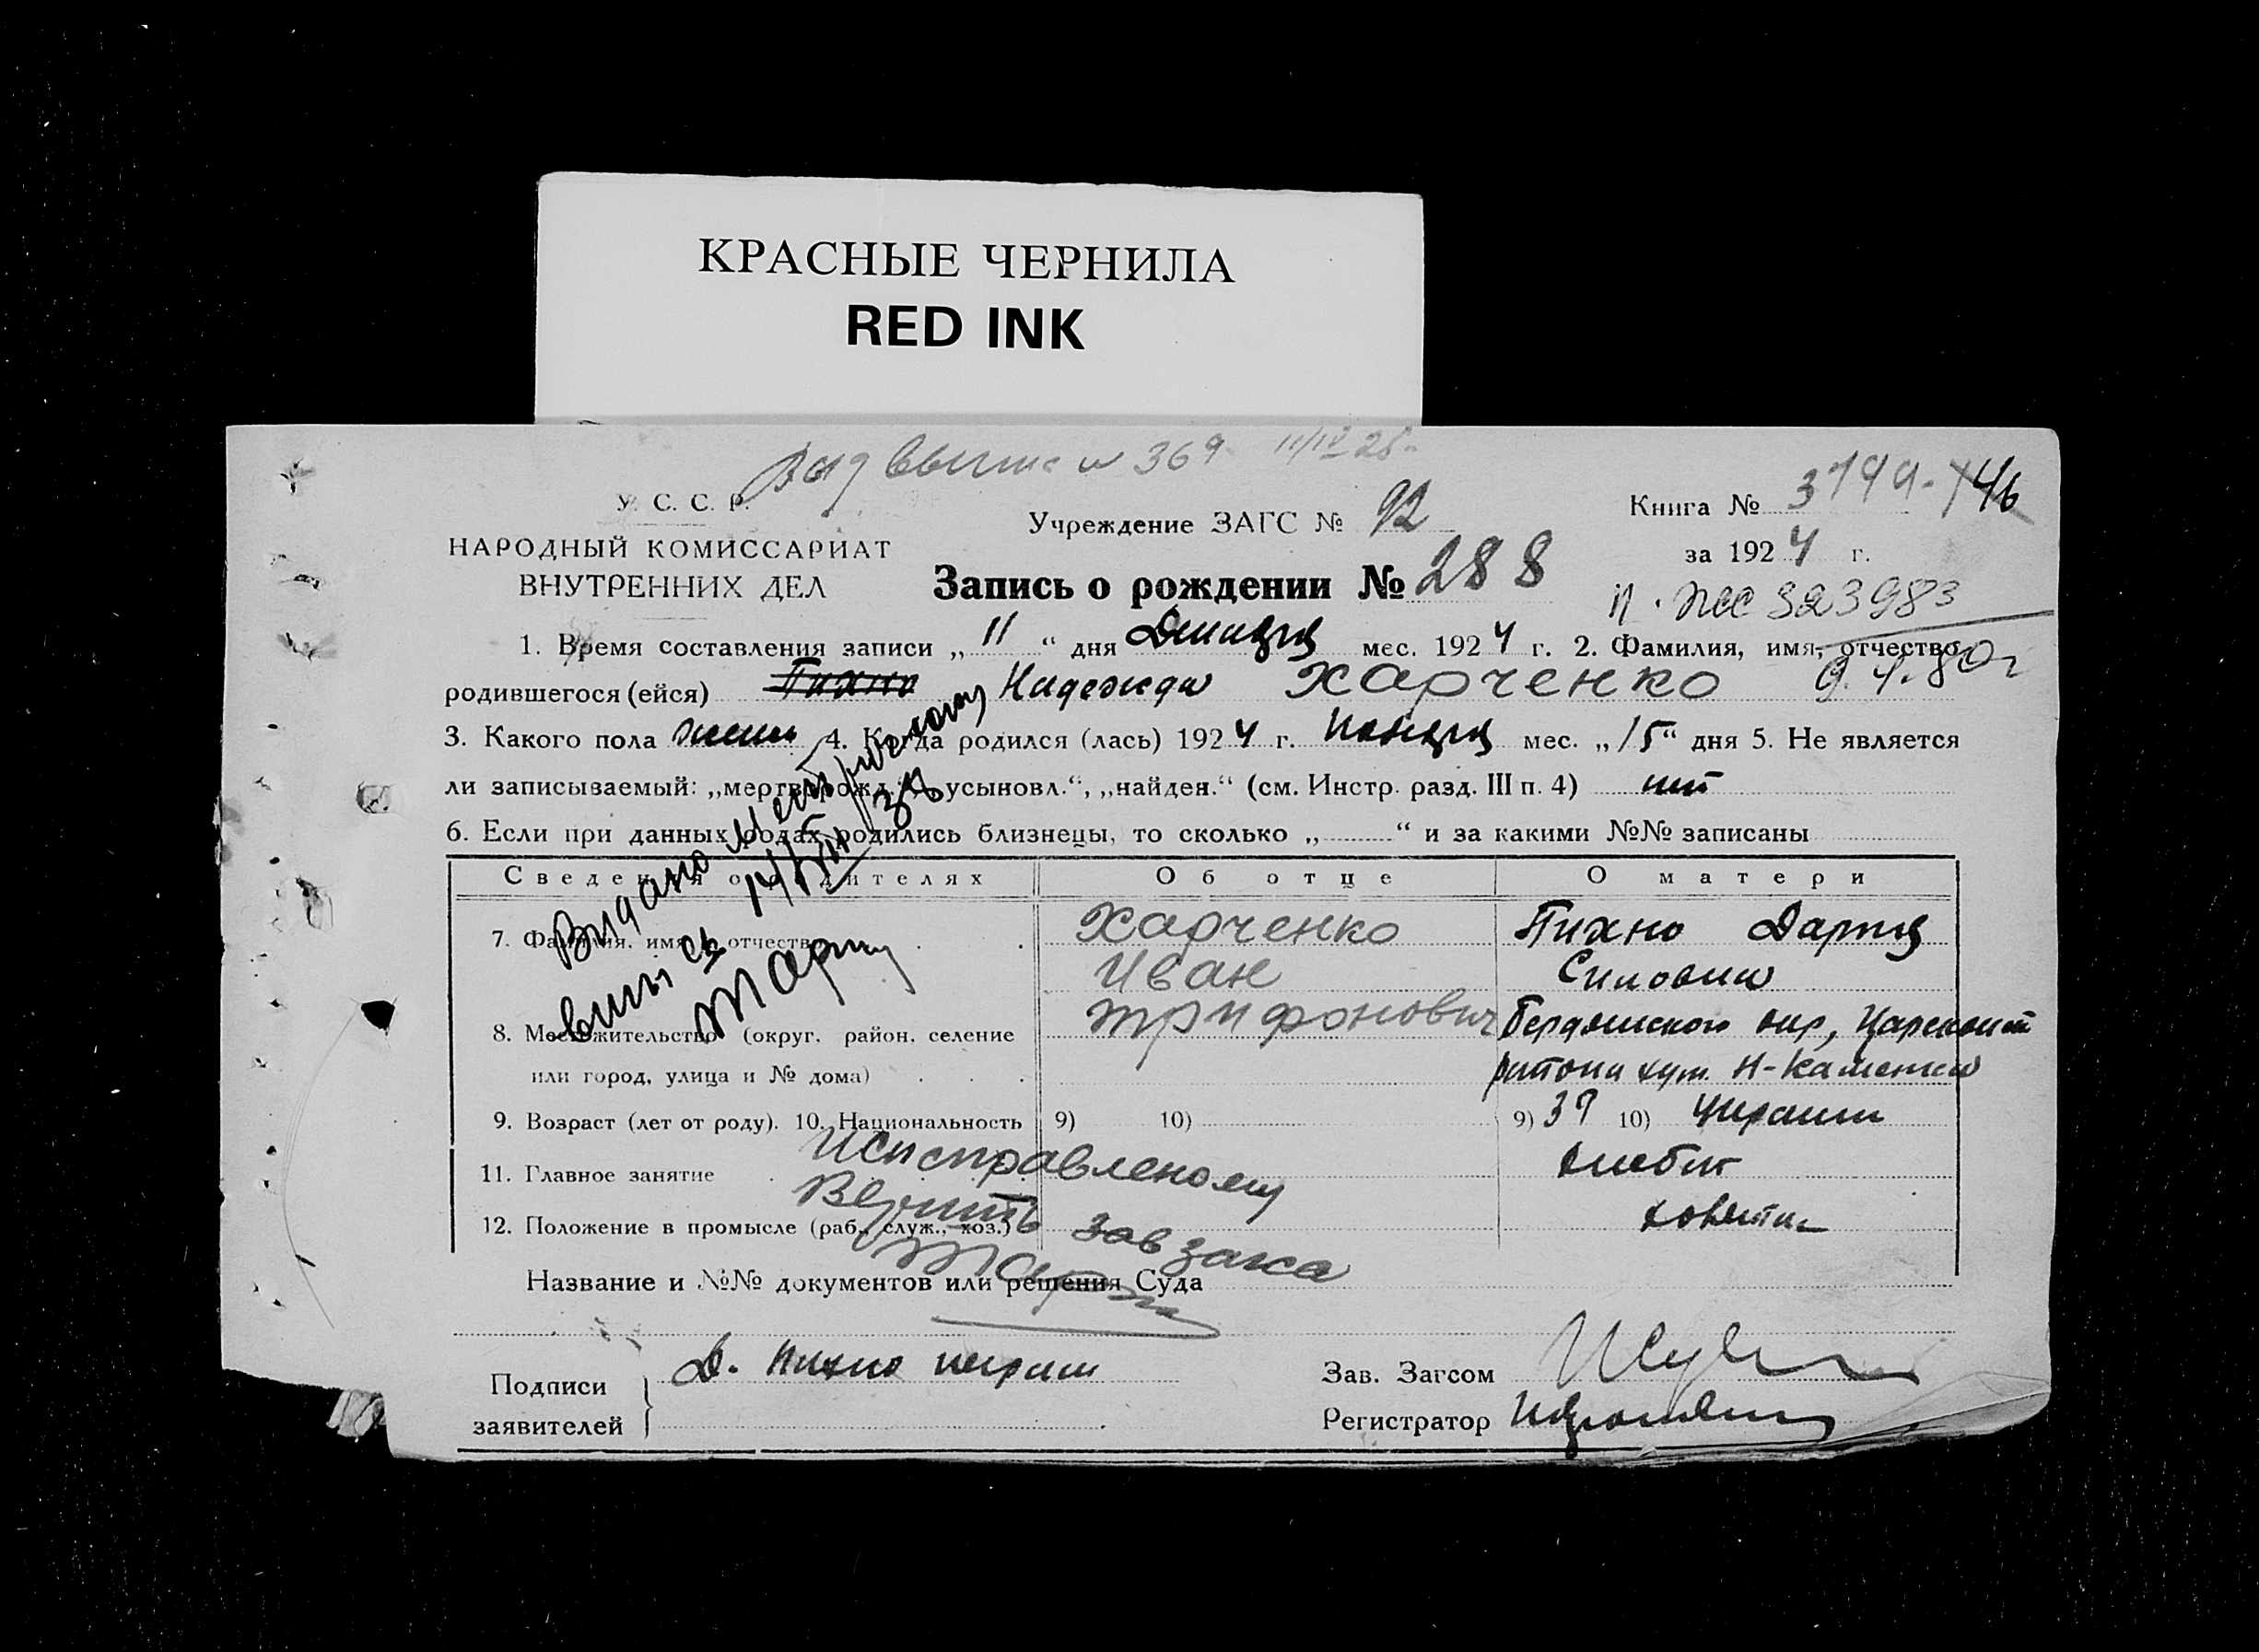 КРАСНЫЕ ЧЕРНИЛА
RED INK
369 11/IV 28
У. С. С. Р.
НАРОДНЫЙ КОМИССАРИАТ
ВНУТРЕННИХ ДЕЛ
Учреждение ЗАГС № 92
Книга №
за 1924 г.
Запись о рождении № 288
323983
1. Время составления записи „11“ дня мес. 1924 г. 2. Фамилия, имя, отчество
родившегося (ейся) Пихно Надежда Харченко 9.4.80г
3. Какого пола женск 4. Когда родился (лась) 1924 г. мес. „15“ дня 5. Не является
ли записываемый: „мертворожд.“, „усыновл.“, „найден.“ (см. Инстр. разд. III п. 4) нет
6. Если при данных родах родились близнецы, то сколько „ “ и за какими №№ записаны
Сведения о родителях
Об отце
О матери
7. Фамилия, имя, отчество
Харченко
Иван
Трифонович
Пихно Дария
8. Местожительство (округ, район, селение
или город, улица и № дома)
Бердянского окр,
района хут. Н-Каменка
9. Возраст (лет от роду). 10. Национальность
9) 10)
9) 39 10) Украин
11. Главное занятие
12. Положение в промысле (раб., служ., хоз.)
Видано метричному
випись
Исправленому
Верить Зав загса
Название и №№ документов или решения Суда
Подписи
заявителей
Д. Пихно
Зав. Загсом
Регистратор